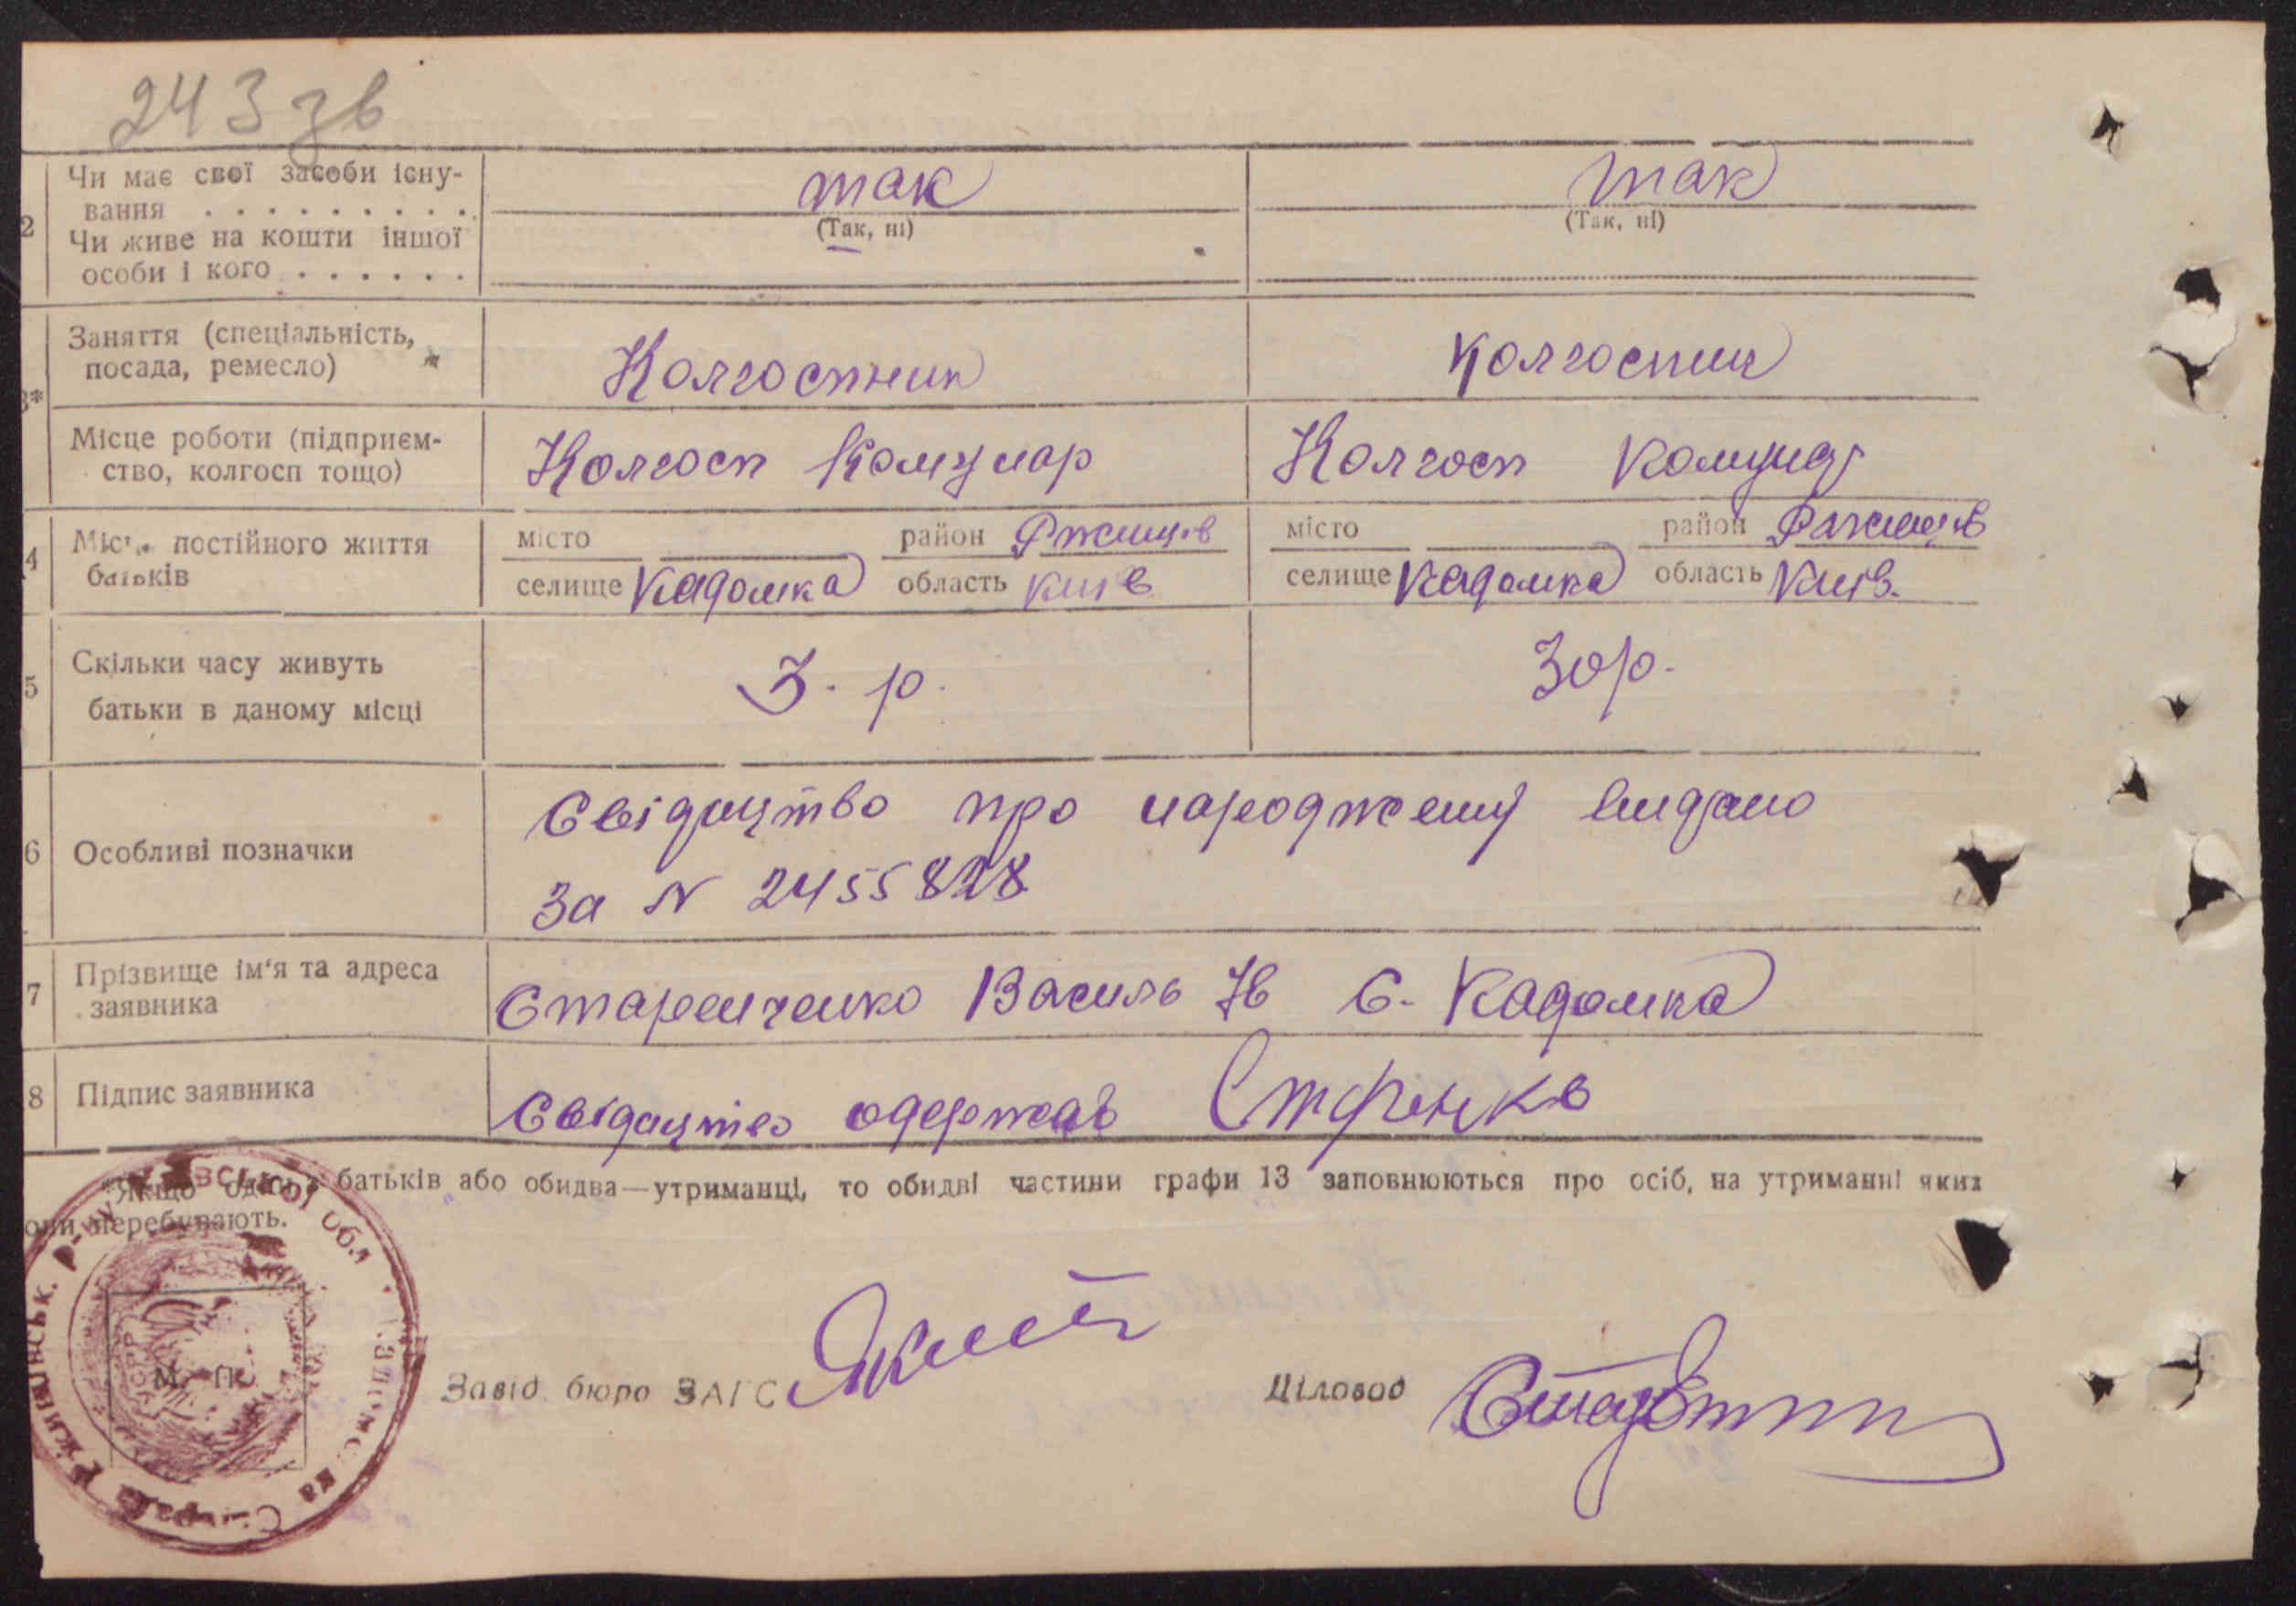 243 зв
2 Чи має свої засоби існу-
вання . . . . . . . . . так так
(Так, ні) (Так, ні)
Чи живе на кошти іншої
особи і кого . . . . . .
3* Заняття (спеціальність,
посада, ремесло) Колгоспник колгоспниц
Місце роботи (підприєм-
ство, колгосп тощо) Колгосп Комунар Колгосп Комунар
4 Місце постійного життя
батьків
місто район Ржищів місто район Ржищів
селище Кадомка область Київ селище Кадомка область Київ.
5 Скільки часу живуть
батьки в даному місці 3. р. 30 р.
6 Особливі позначки
Свідоцтво про народженну видано
За N 2455828
7 Прізвище ім'я та адреса
заявника Старенченко Василь Ів С. Кадомка
8 Підпис заявника Свідоцтво одержав
*Якщо один з батьків або обидва—утриманці, то обидві частини графи 13 заповнюються про осіб, на утриманні яких
вони перебувають.
М. П.
Завід. бюро ЗАГС Діловод